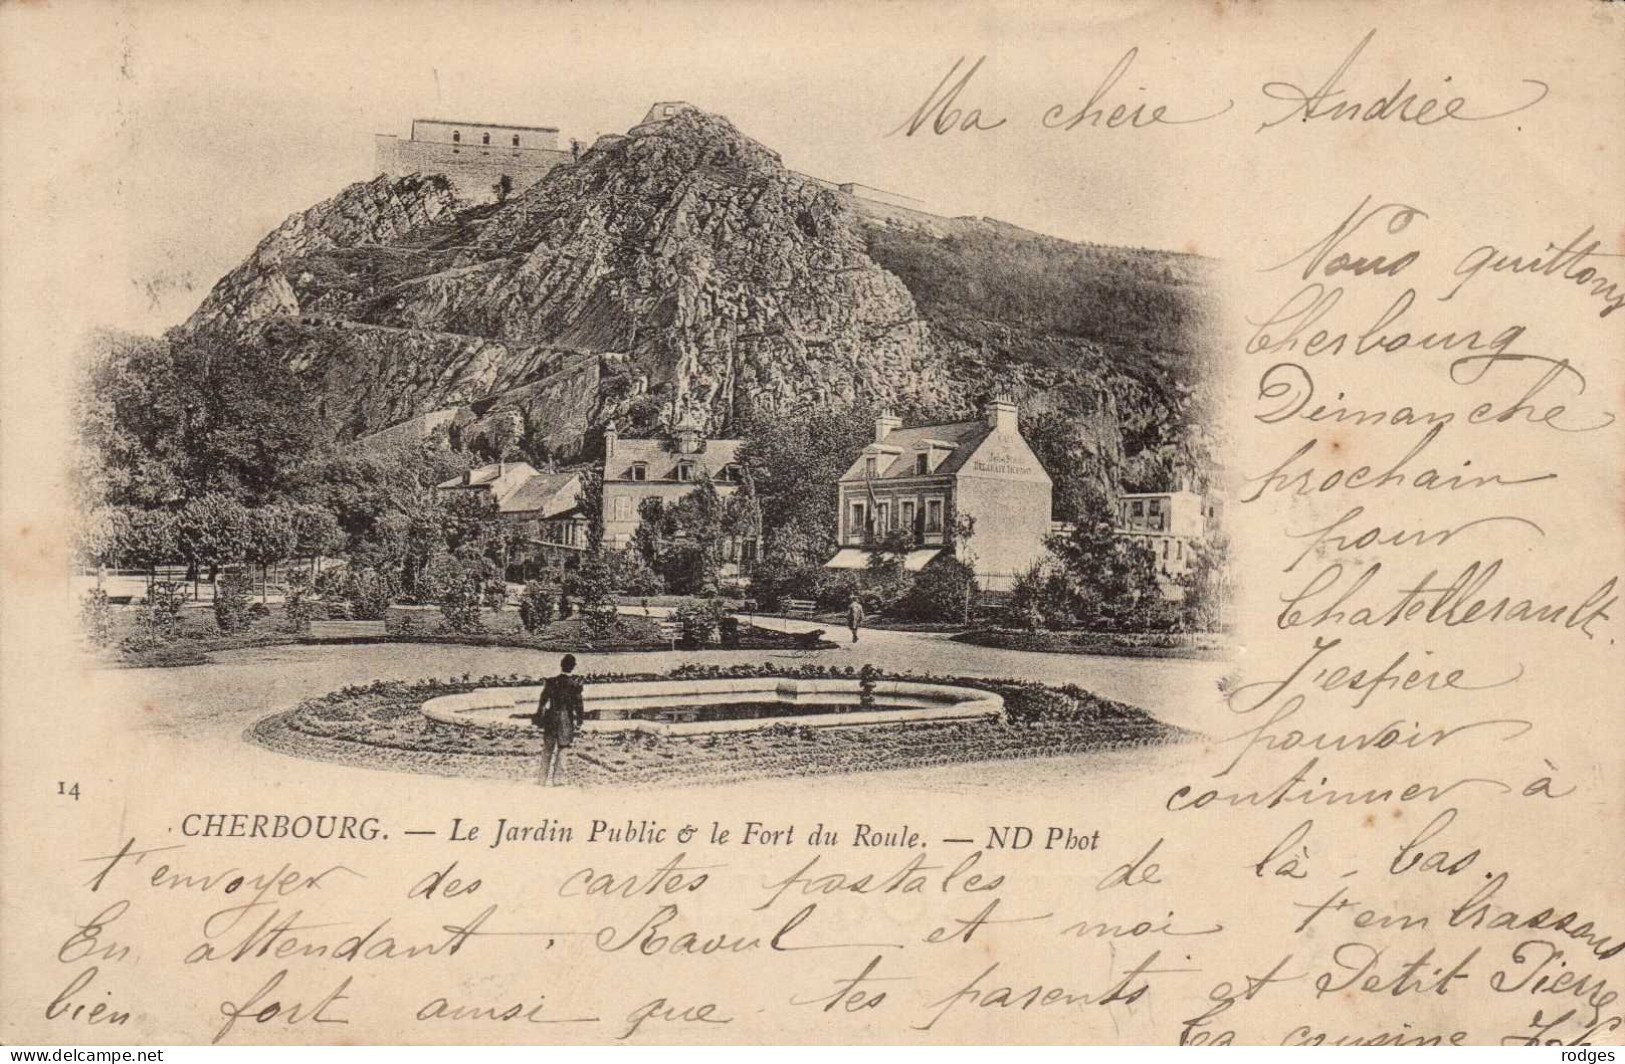 Ma chère Andrée.
Nous quittons
Cherbourg
Dimanche
prochain
pour
Chatellerault.
J'espère
pouvoir
continuer à
14
CHERBOURG. — Le Jardin Public & le Fort du Roule. — ND Phot
t'envoyer des cartes postales de là-bas.
En attendant. Raoul et moi t'embrassons
bien fort ainsi que tes parents et Petit Pierre
Ta cousine
www.delcampe.net
rodges